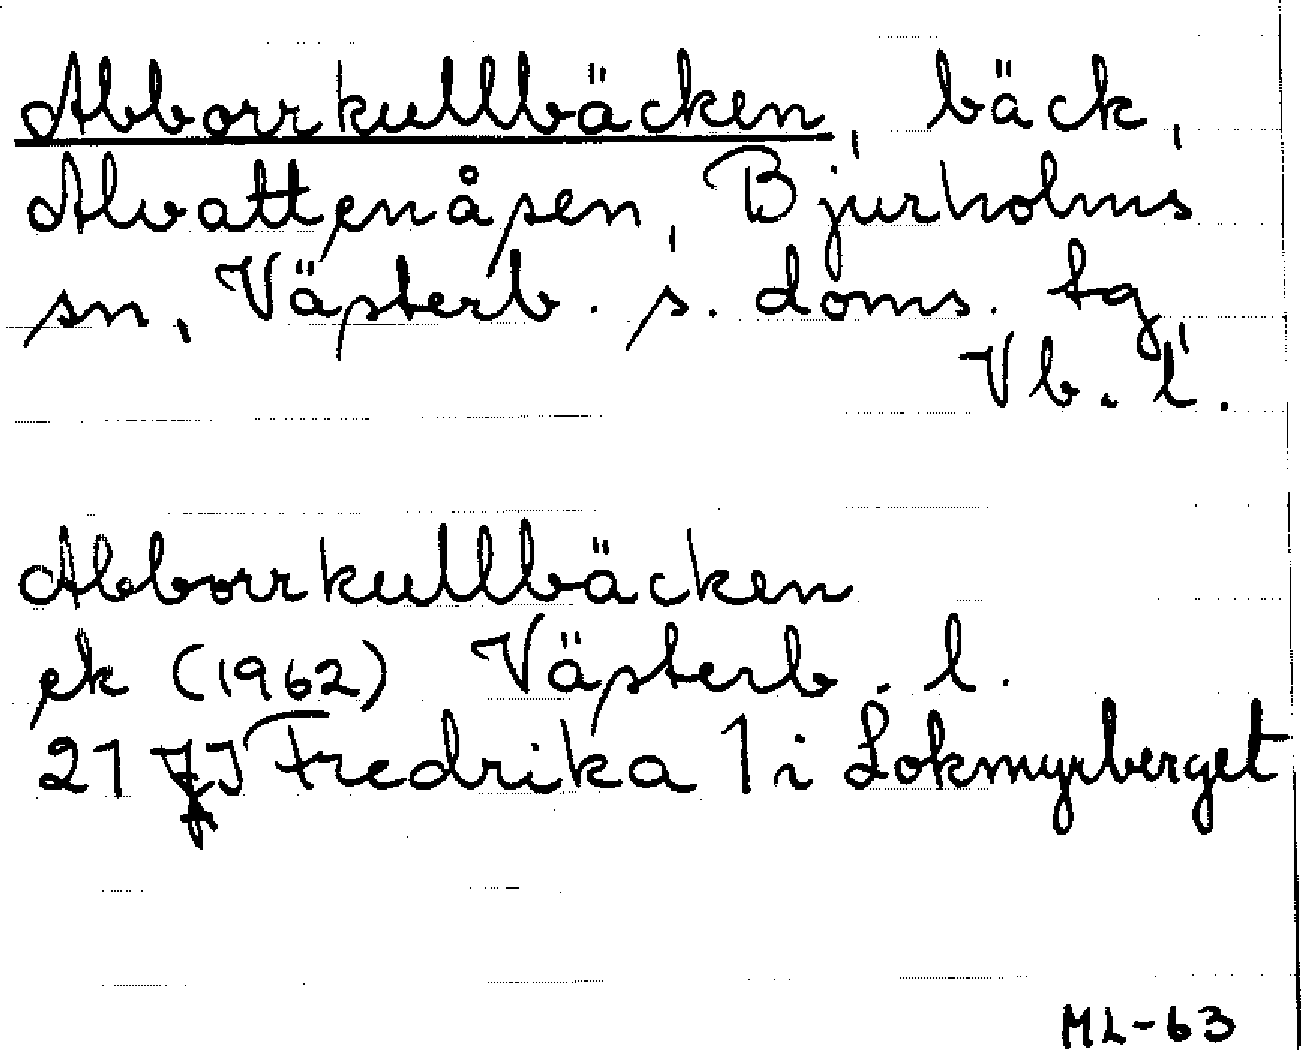 Abborrkullbäcken, bäck,
Alvattenåsen, Bjurholms
sn, Västerb. s. doms. tg
Vb. l.
Abborrkullbäcken
ek (1962) Västerb. l.
21 J Fredrika 1 i Lokmyrberget
ML-63